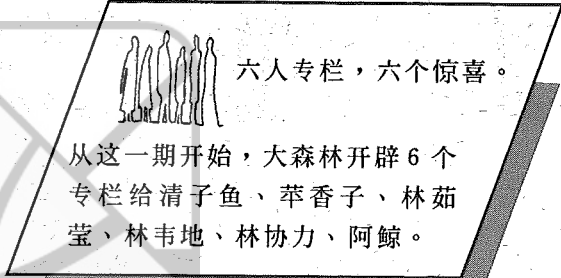 六人专栏，六个惊喜。
从这一期开始，大森林开辟6个
专栏给清子鱼、苹香子、林茹
莹、林韦地、林协力、阿鲸。